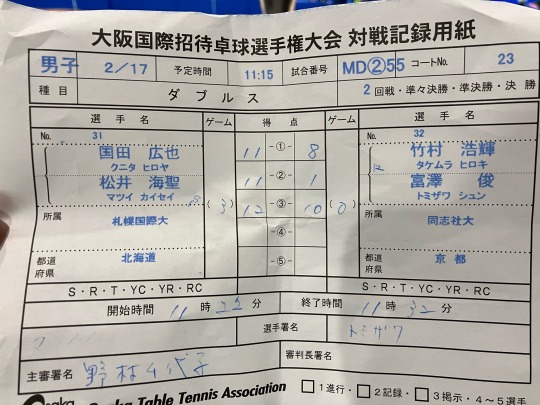 大阪国際招待卓球選手権大会 対戦記録用紙
男子 2/17 予定時間 11:15 試合番号 MD②55 コートNo. 23
種目 ダブルス 2回戦・準々決勝・準決勝・決勝
選手名 ゲーム 得点 ゲーム 選手名
No. 31 No. 32
国田 広也 11 -①- 8 竹村 浩輝
クニタ ヒロヤ タケムラ ヒロキ
松井 海聖 11 -②- 1 富澤 俊
マツイ カイセイ (3) 12 -③- 10 (0) トミザワ シュン
所属 札幌国際大 -④- 所属 同志社大
都道府県 北海道 -⑤- 都道府県 京都
S・R・T・YC・YR・RC S・R・T・YC・YR・RC
開始時間 11時22分 終了時間 11時32分
選手署名 トミザワ
主審署名 野村 審判長署名
Osaka Table Tennis Association □1進行・□2記録・□3掲示・4～5選手